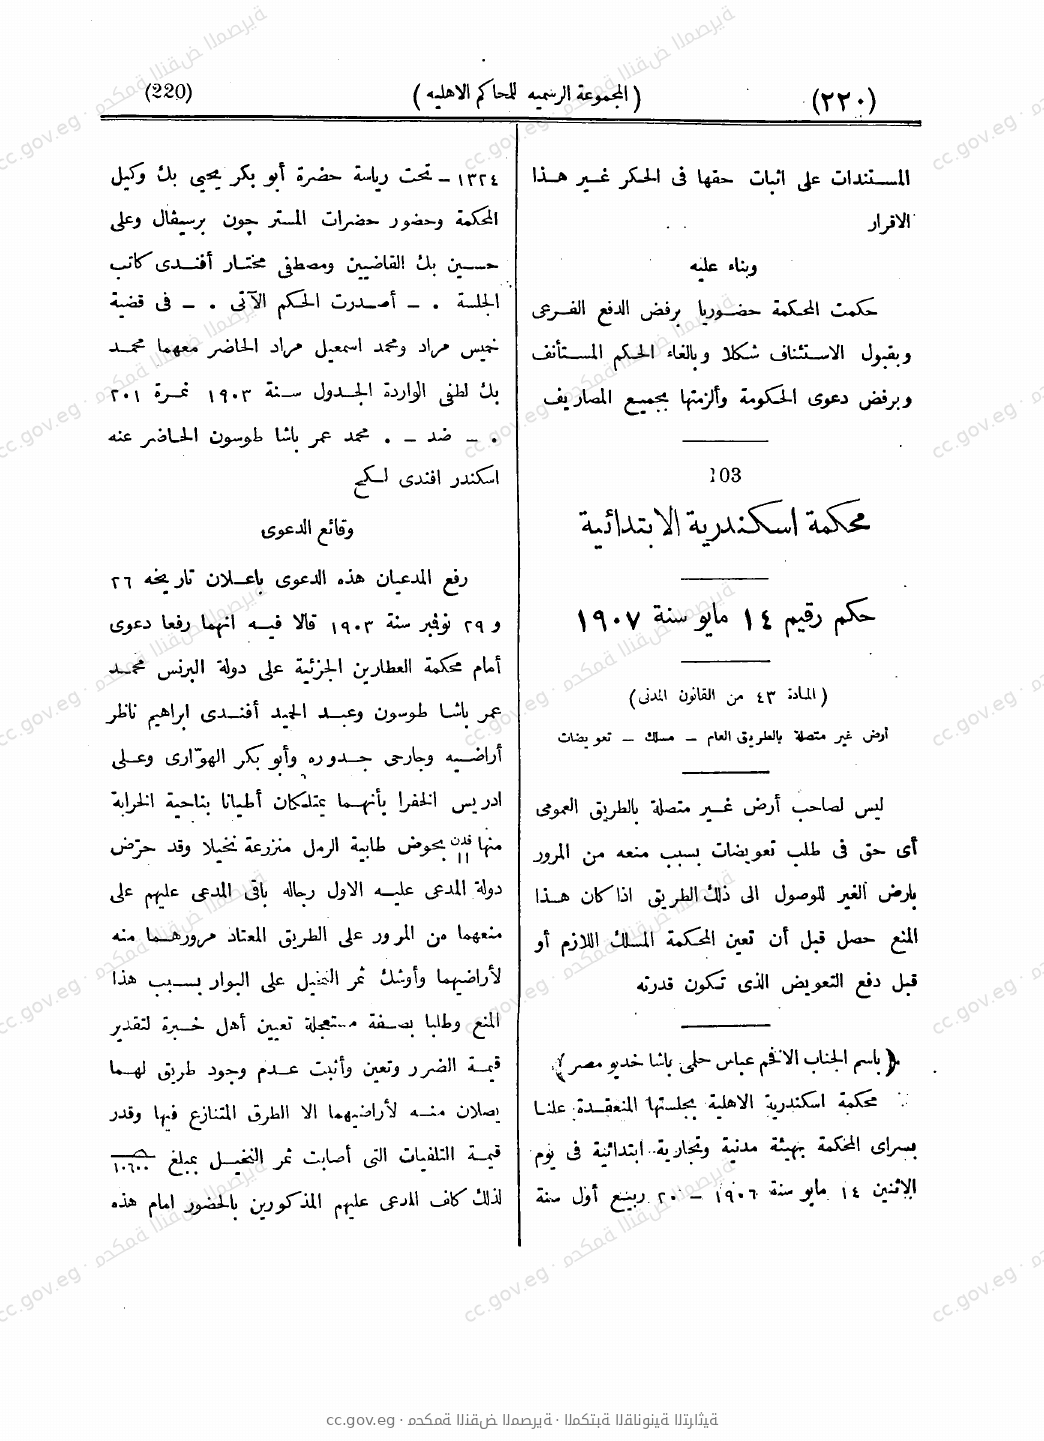 (٢٢٠)
(المجموعة الرسميه للمحاكم الاهليه)
(220)
المستندات على اثبات حقها فى الحكر غير هذا
الاقرار
وبناء عليه
حكمت المحكمة حضوريا برفض الدفع الفرعى
وبقبول الاستئناف شكلا وبالغاء الحكم المستأنف
وبرفض دعوى الحكومة وألزمتها بجميع المصاريف
103
محكمة اسكندرية الابتدائية
حكم رقيم ١٤ مايو سنة ١٩٠٧
(المادة ٤٣ من القانون المدنى)
أرض غير متصلة بالطريق العام – مسلك – تعويضات
ليس لصاحب أرض غير متصلة بالطريق العمومى
أى حق فى طلب تعويضات بسبب منعه من المرور
بارض الغير للوصول الى ذلك الطريق اذا كان هذا
المنع حصل قبل أن تعين المحكمة المسلك اللازم أو
قبل دفع التعويض الذى تكون قدرته
(باسم الجناب الافخم عباس حلمى باشا خديو مصر)
محكمة اسكندرية الاهلية بجلستها المنعقدة علنا
بسراى المحكمة بهيئة مدنية وتجارية ابتدائية فى يوم
الاثنين ١٤ مايو سنة ١٩٠٦ – ٢٠ ربيع أول سنة
١٣٢٤ – تحت رياسة حضرة أبو بكر يحيى بك وكيل
المحكمة وحضور حضرات المستر چون برسيڤال وعلى
حسين بك القاضيين ومصطفى مختار أفندى كاتب
الجلسة . – أصدرت الحكم الآتى . – فى قضية
خميس مراد ومحمد اسمعيل مراد الحاضر معهما محمد
بك لطفى الواردة الجدول سنة ١٩٠٣ نمرة ٢٠١
. – ضد – . محمد عمر باشا طوسون الحاضر عنه
اسكندر افندى لكح
وقائع الدعوى
رفع المدعيان هذه الدعوى باعلان تاريخه ٢٦
و ٢٩ نوفمبر سنة ١٩٠٣ قالا فيه انهما رفعا دعوى
أمام محكمة العطارين الجزئية على دولة البرنس محمد
عمر باشا طوسون وعبد الحميد أفندى ابراهيم ناظر
أراضيه وجارحى جدوره وأبو بكر الهوّارى وعلى
ادريس الخفرا بأنهما يمتلكان أطيانا بناحية الخرابة
منها فدن ١١ بحوض طابية الرمل منزرعة نخيلا وقد حرّض
دولة المدعى عليه الاول رجاله باقى المدعى عليهم على
منعهما من المرور على الطريق المعتاد مرورهما منه
لأراضيهما وأوشك ثمر النخيل على البوار بسبب هذا
المنع وطلبا بصفة مستعجلة تعيين أهل خبرة لتقدير
قيمة الضرر وتعين وأثبت عدم وجود طريق لهما
يصلان منه لأراضيهما الا الطرق المتنازع فيها وقدر
قيمة التلفيات التى أصابت ثمر النخيل بمبلغ ١٠٦٠٠
لذلك كلف المدعى عليهم المذكورين بالحضور امام هذه
cc.gov.eg · محكمة النقض المصرية · المكتبة القانونية التراثية